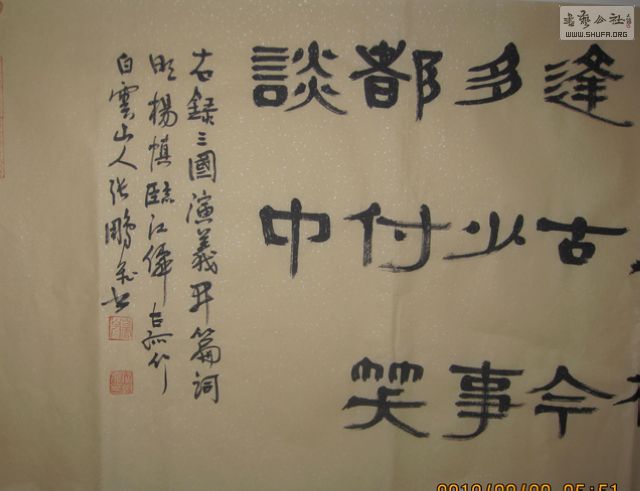 逢古今
多少事
都付笑
談中
右錄三國演義開篇詞
明楊慎臨江僊
白雲山人張鵬
書藝公社
WWW.SHUFA.ORG